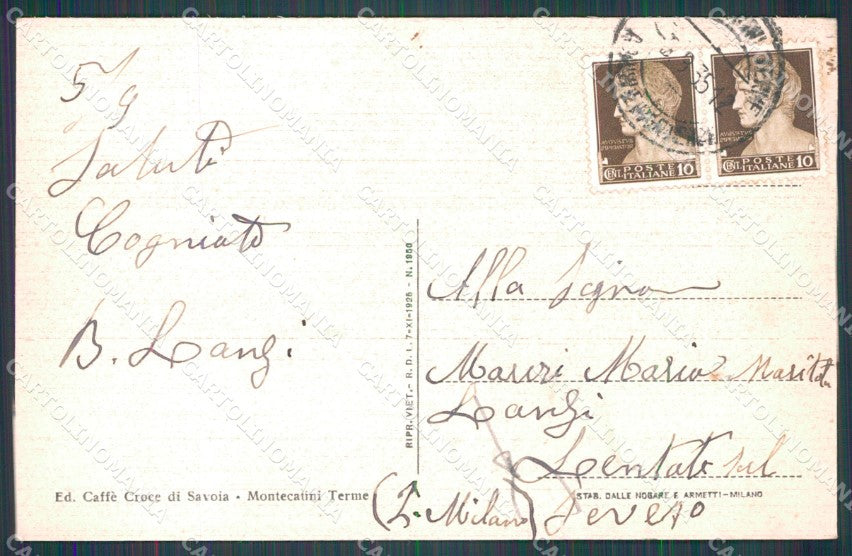 5/9
Saluti
Cogniato
B. Langi
Ed. Caffè Croce di Savoia - Montecatini Terme
RIPR. VIET. - R. D. L. 7-XI-1925 - N. 1950
POSTE ITALIANE
CENT. 10
POSTE ITALIANE
CENT. 10
Alla Signora
Mauri Maria Maritata
Langi
Lentate sul
Seveso
(P. Milano)
STAB. DALLE NOGARE E ARMETTI - MILANO
CARTOLINOMANIA